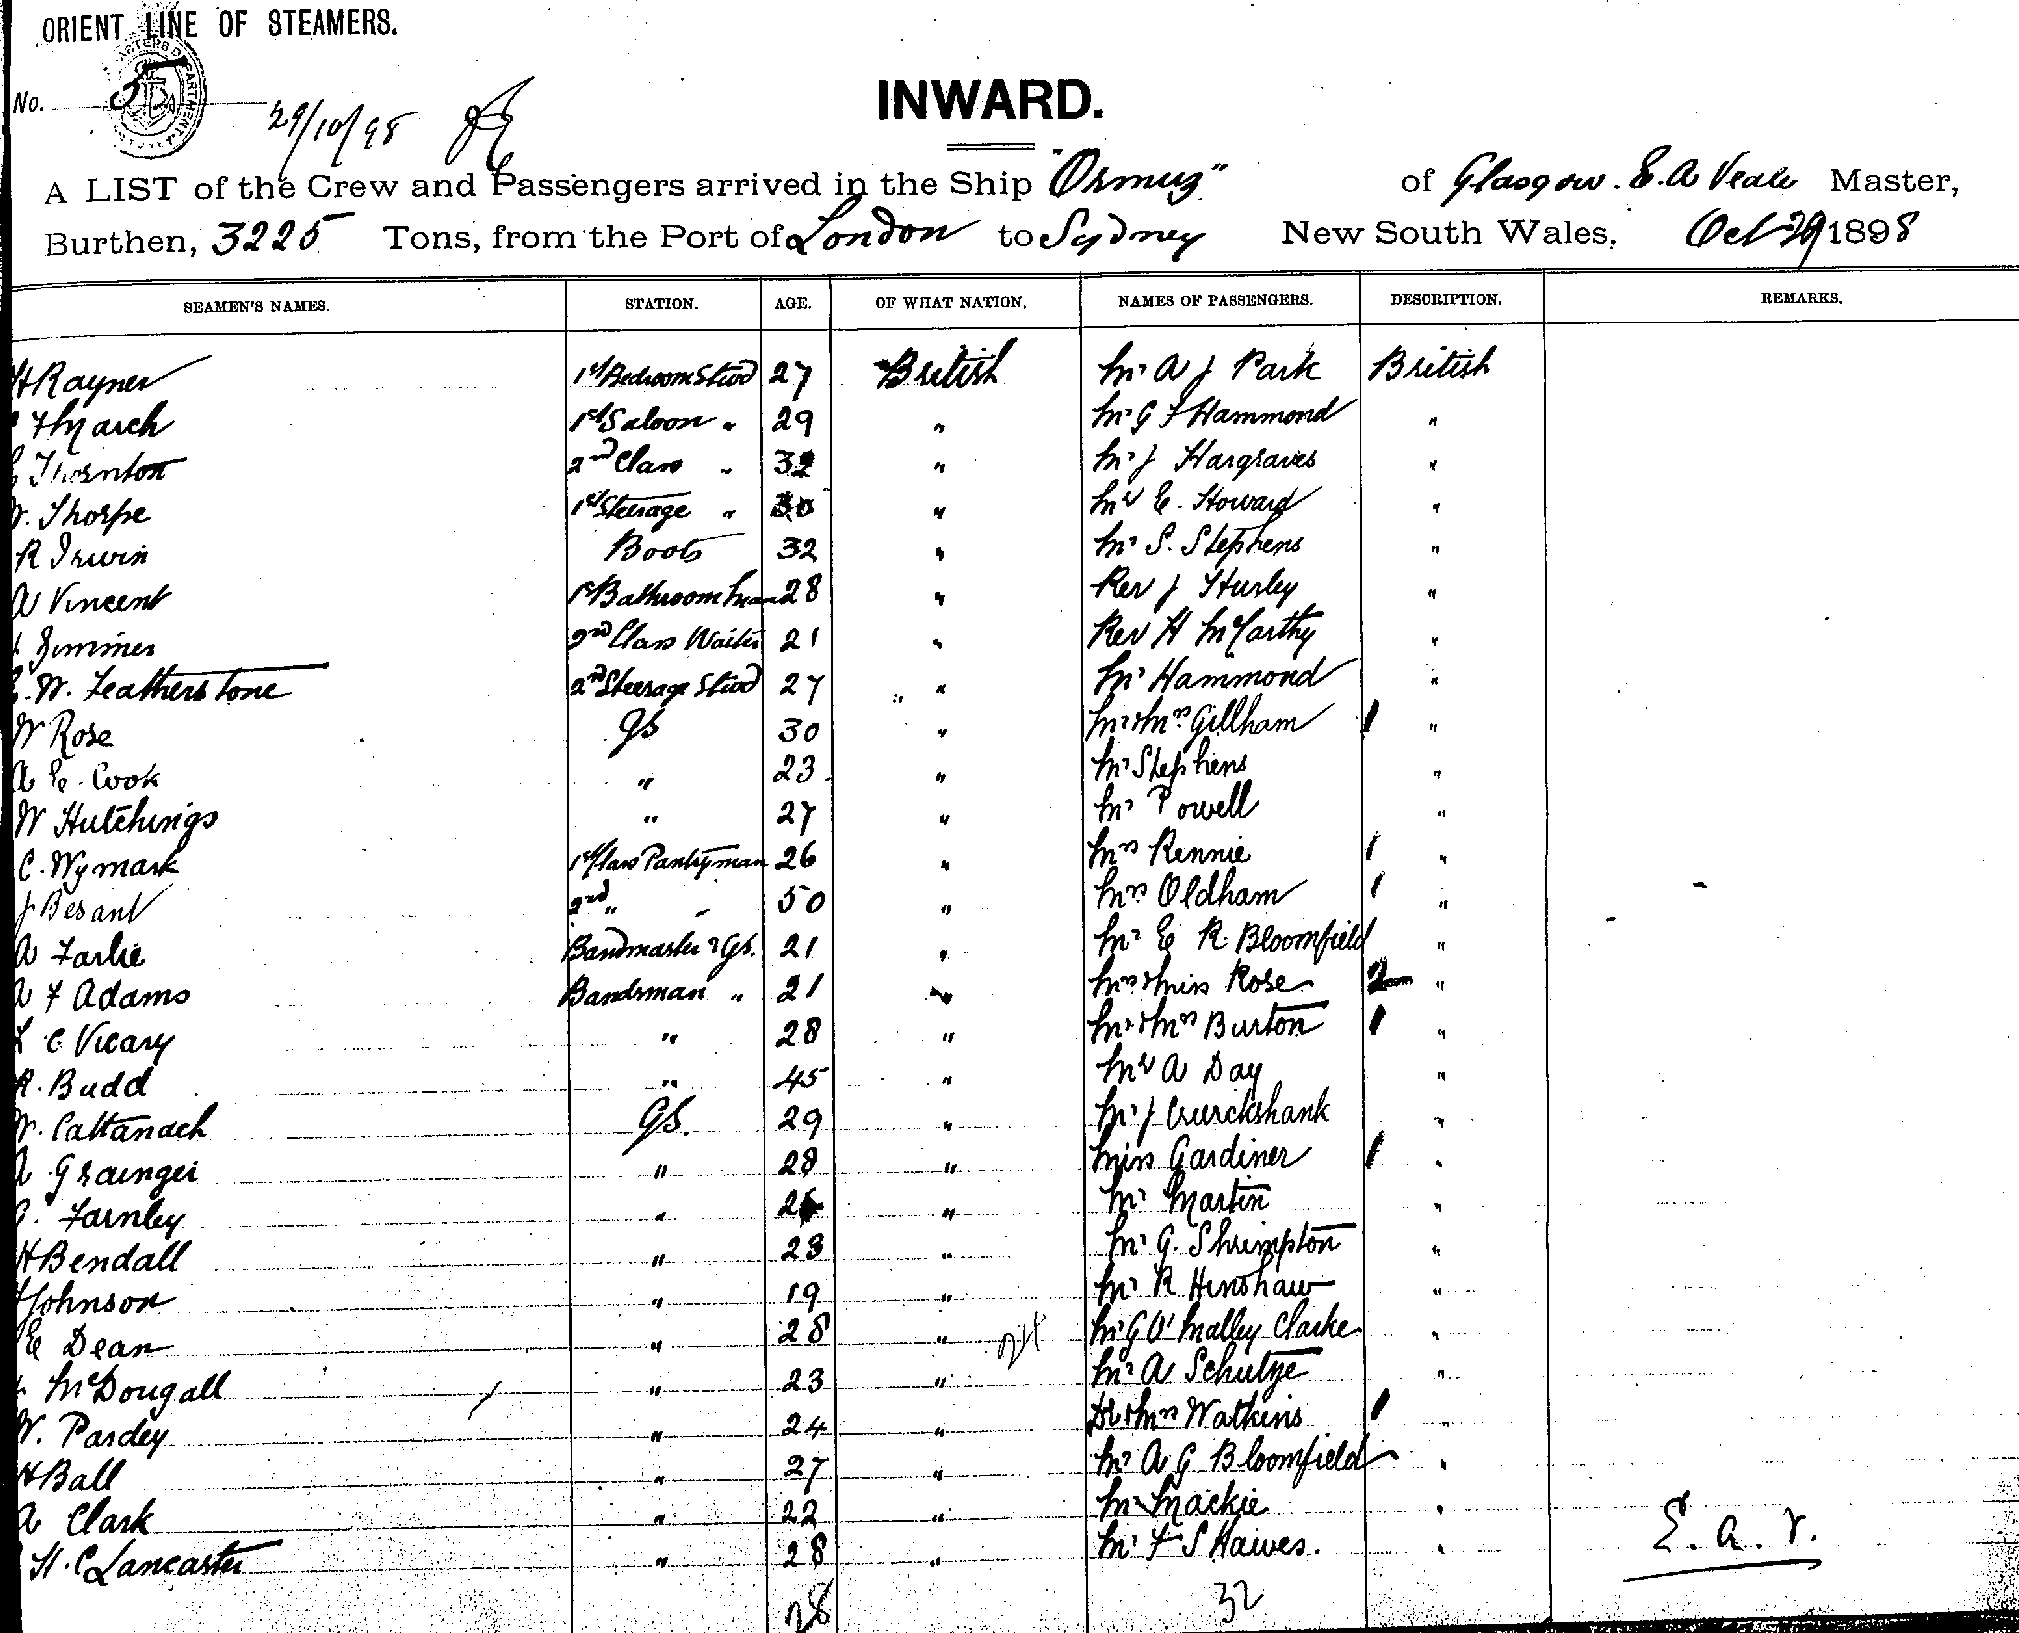 ORIENT LINE OF STEAMERS.
No. 5
29/10/98
INWARD.
A LIST of the Crew and Passengers arrived in the Ship "Ormuz" of Glasgow. E. A Veale Master,
Burthen, 3225 Tons, from the Port of London to Sydney New South Wales, Oct 29 1898
SEAMEN'S NAMES. STATION. AGE. OF WHAT NATION. NAMES OF PASSENGERS. DESCRIPTION. REMARKS.
H Rayner 1st Bedroom Stwd 27 British Mr A J Park British
F March 1st Saloon " 29 " Mr G F Hammond "
Thornton 2nd Class " 32 " Mr J Hargraves "
W. Thorpe 1st Steerage " 30 " Mr E. Howard "
R Irwin Boots 32 " Mr S. Stephens "
A Vincent 1st Bathroom man 28 " Rev J Hurley "
Jimmer 2nd Class Waiter 21 " Rev H McCarthy "
W. Featherstone 2nd Steerage Stwd 27 " Mr Hammond "
W Rose GS 30 " Mr & Mrs Gillham 1 "
A E. Cook " 23 " Mr Stephens "
W Hutchings " 27 " Mr Powell "
C. Wymark 1st Class Pantryman 26 " Mrs Rennie 1 "
J Besant 2nd " 50 " Mrs Oldham 1 "
A Farlie Bandmaster & GS. 21 " Mr E R. Bloomfield "
A F Adams Bandsman " 21 " Mrs & Miss Rose 2 "
C Vicary " 28 " Mr & Mrs Burton 1 "
R. Budd " 45 " Mr A Day "
W. Cattanach GS. 29 " Mr J Cruickshank "
A Grainger " 28 " Miss Gardiner 1 "
Farnley " " Mr Martin "
H Bendall " 23 " Mr G. Shrimpton "
Johnson " 19 " Mr R Hinshaw "
E Dean " 28 " Mr G O'Malley Clarke "
McDougall " 23 " Mr A Schutze "
W. Pardey " 24 " Dr & Mrs Watkins 1 "
H Ball " 27 " Mr A G Bloomfield "
A Clark " 22 " Mr Mackie "
H. C Lancaster " 28 " Mr F S Hawes. "
E. A. V.
28 32